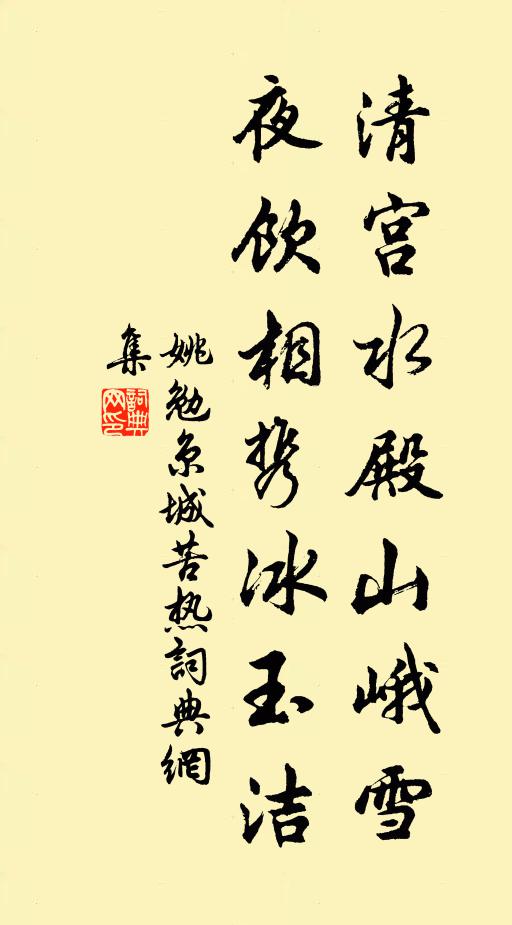 清宫水殿山峨雪
夜饮相携冰玉洁
姚勉京城苦热詞典網
集
詞典
网印